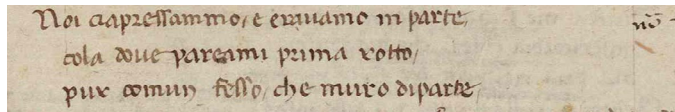 Noi ciapressammo, e eravamo in parte,
cola doue pareami prima rotto,
pur comun fesso, che muro diparte,